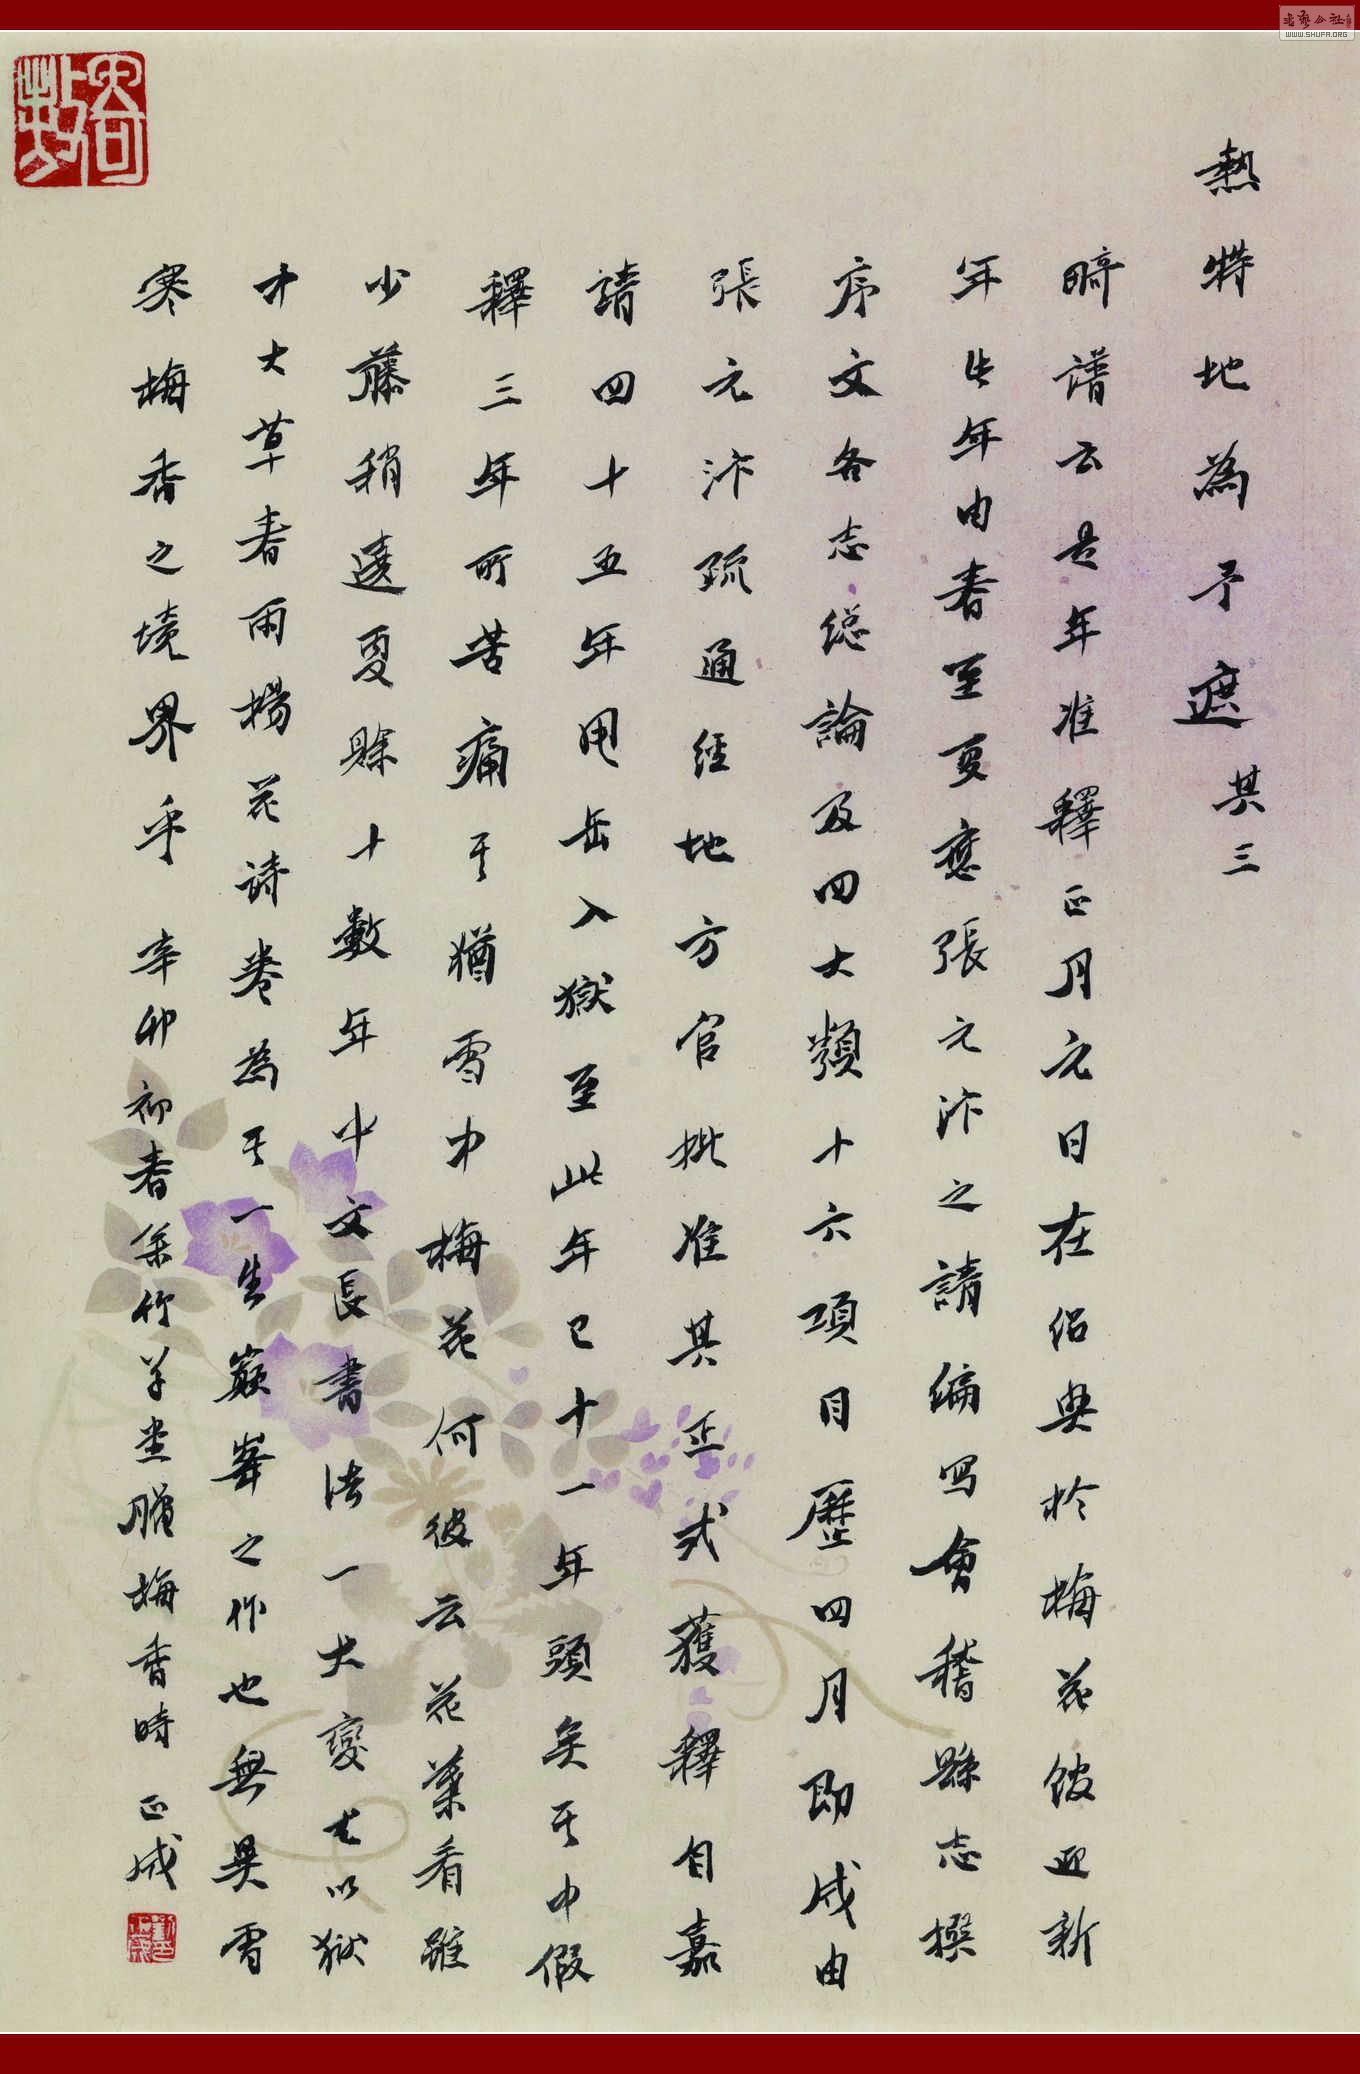 熱特地為予遮 其三
畸譜云是年准釋正月元日在侶與於梅花館迎新
年此年由春至夏應張元汴之請編写會稽縣志撰
序文各志總論及四大類十六項目歷四月即成由
張元汴疏通經地方官批准其正式獲釋自嘉
請四十五年甩岳入獄至此年已十一年頭矣其中假
釋三年所苦痛其猶雪中梅花何彼云花葉看雖
少藤稍遶夏賒十數年中文長書法一大變老以獄
中大草春雨楊花詩卷為其一生巅峯之作也無異雪
寒梅香之境界乎 辛卯初春余竹羊堂臘梅香時 正成
書藝公社
WWW.SHUFA.ORG